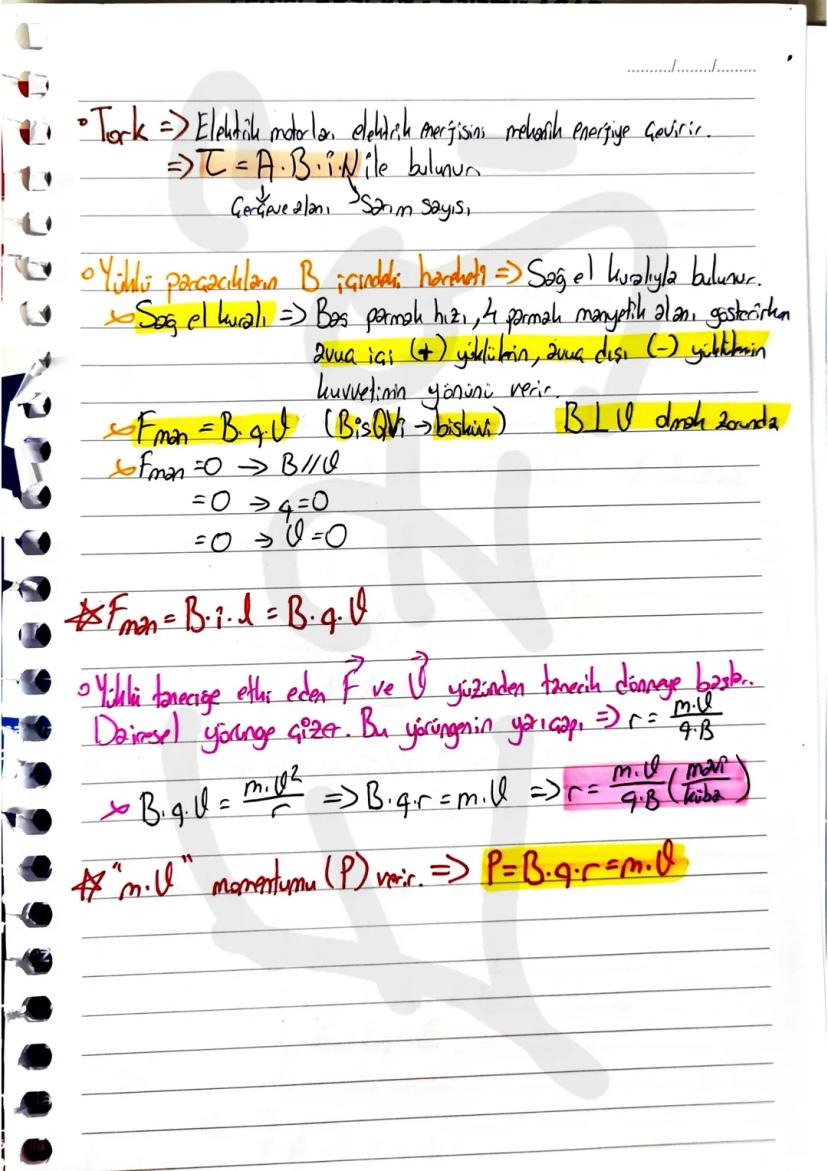 ........../........./..........
• Tork => Elektrik motorları elektrik enerjisini mekanik enerjiye çevirir.
=> τ = A.B.i.N ile bulunur
Çerçeve alanı Sarım sayısı
• Yüklü parçacıkların B içindeki hareketi => Sağ el kuralıyla bulunur.
Sağ el kuralı => Baş parmak hızı, 4 parmak manyetik alanı gösterirken
avuç içi (+) yüklülerin, avuç dışı (-) yüklülerin
kuvvetinin yönünü verir.
Fman = B.q.V (BisQVi → bisküvi) B⊥V olmak zorunda
Fman = 0 → B//V
= 0 → q=0
= 0 → V=0
☆ Fman = B.i.l = B.q.V
• Yüklü taneciğe etki eden F ve V yüzünden tanecik dönmeye başlar.
Dairesel yörünge çizer. Bu yörüngenin yarıçapı => r = m.V/q.B
B.q.V = m.V²/r => B.q.r = m.V => r = m.V/q.B (mavi/küba)
☆ "m.V" momentumu (P) verir. => P = B.q.r = m.V